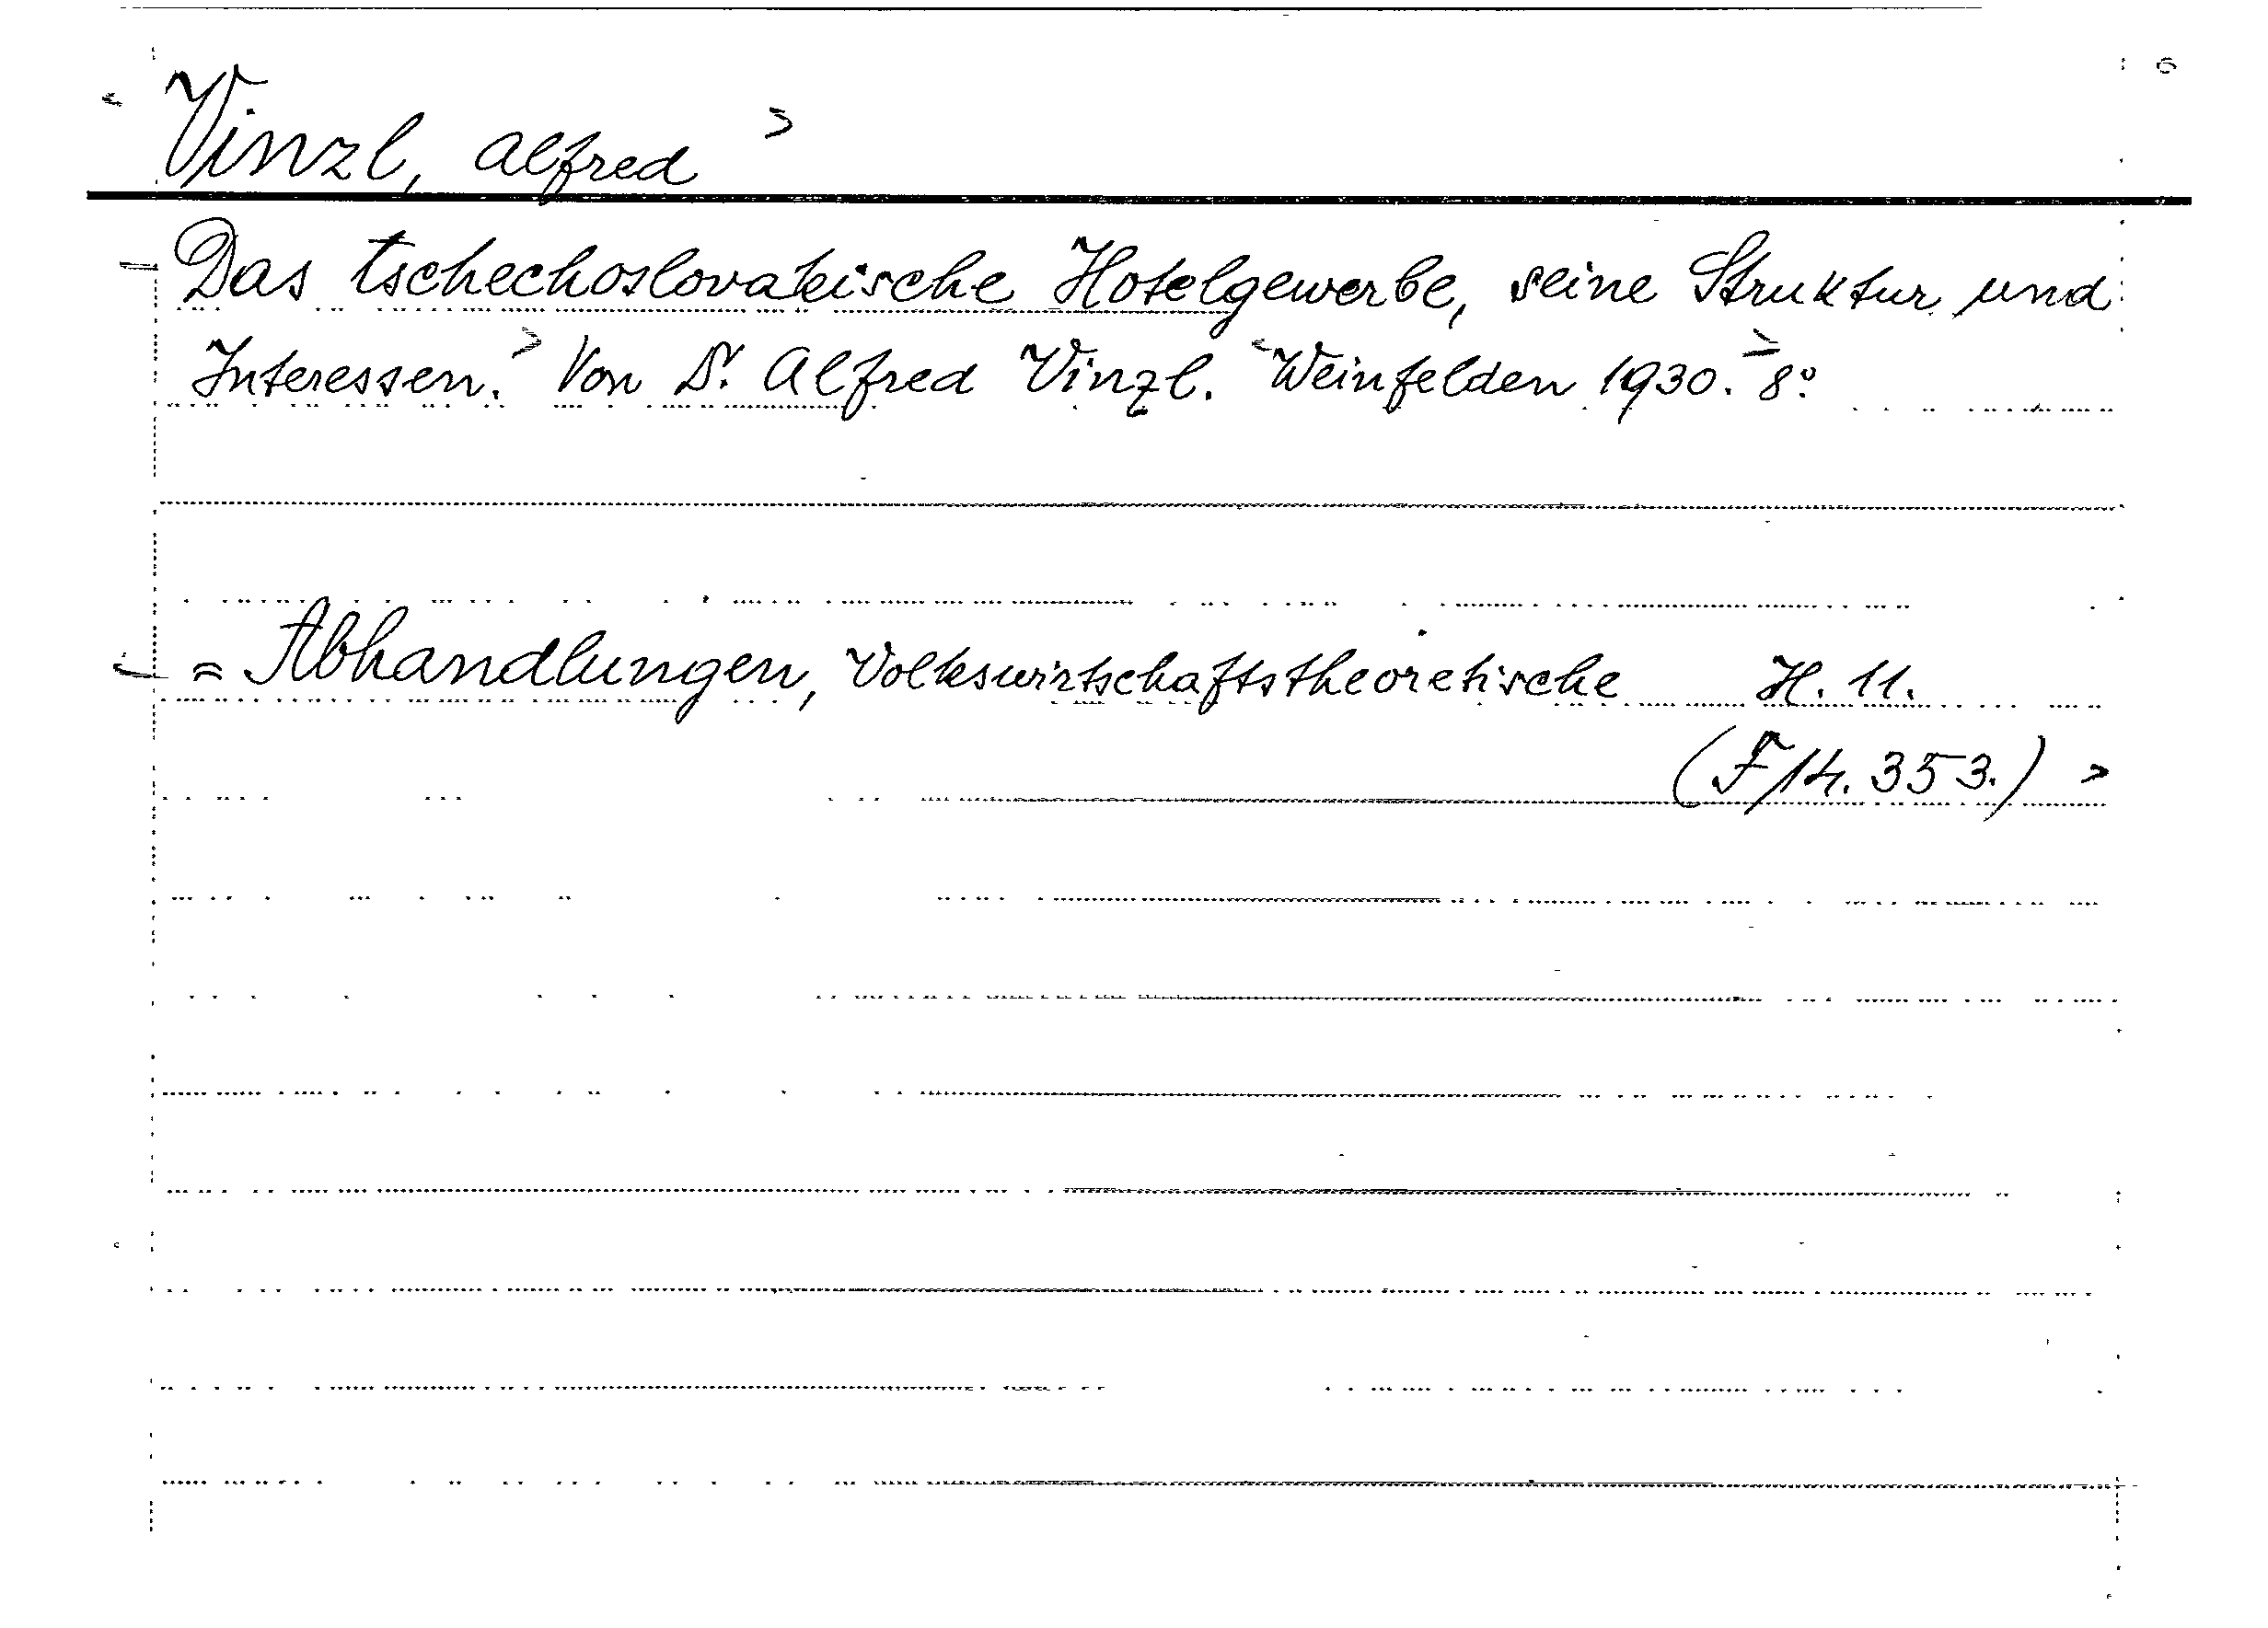 Vinzl, Alfred
Das tschechoslovakische Hotelgewerbe, seine Struktur und
Interessen. Von Dr. Alfred Vinzl. Weinfelden 1930. 8°
= Abhandlungen, Volkswirtschaftstheoretische H. 11.
(F 14. 353.)